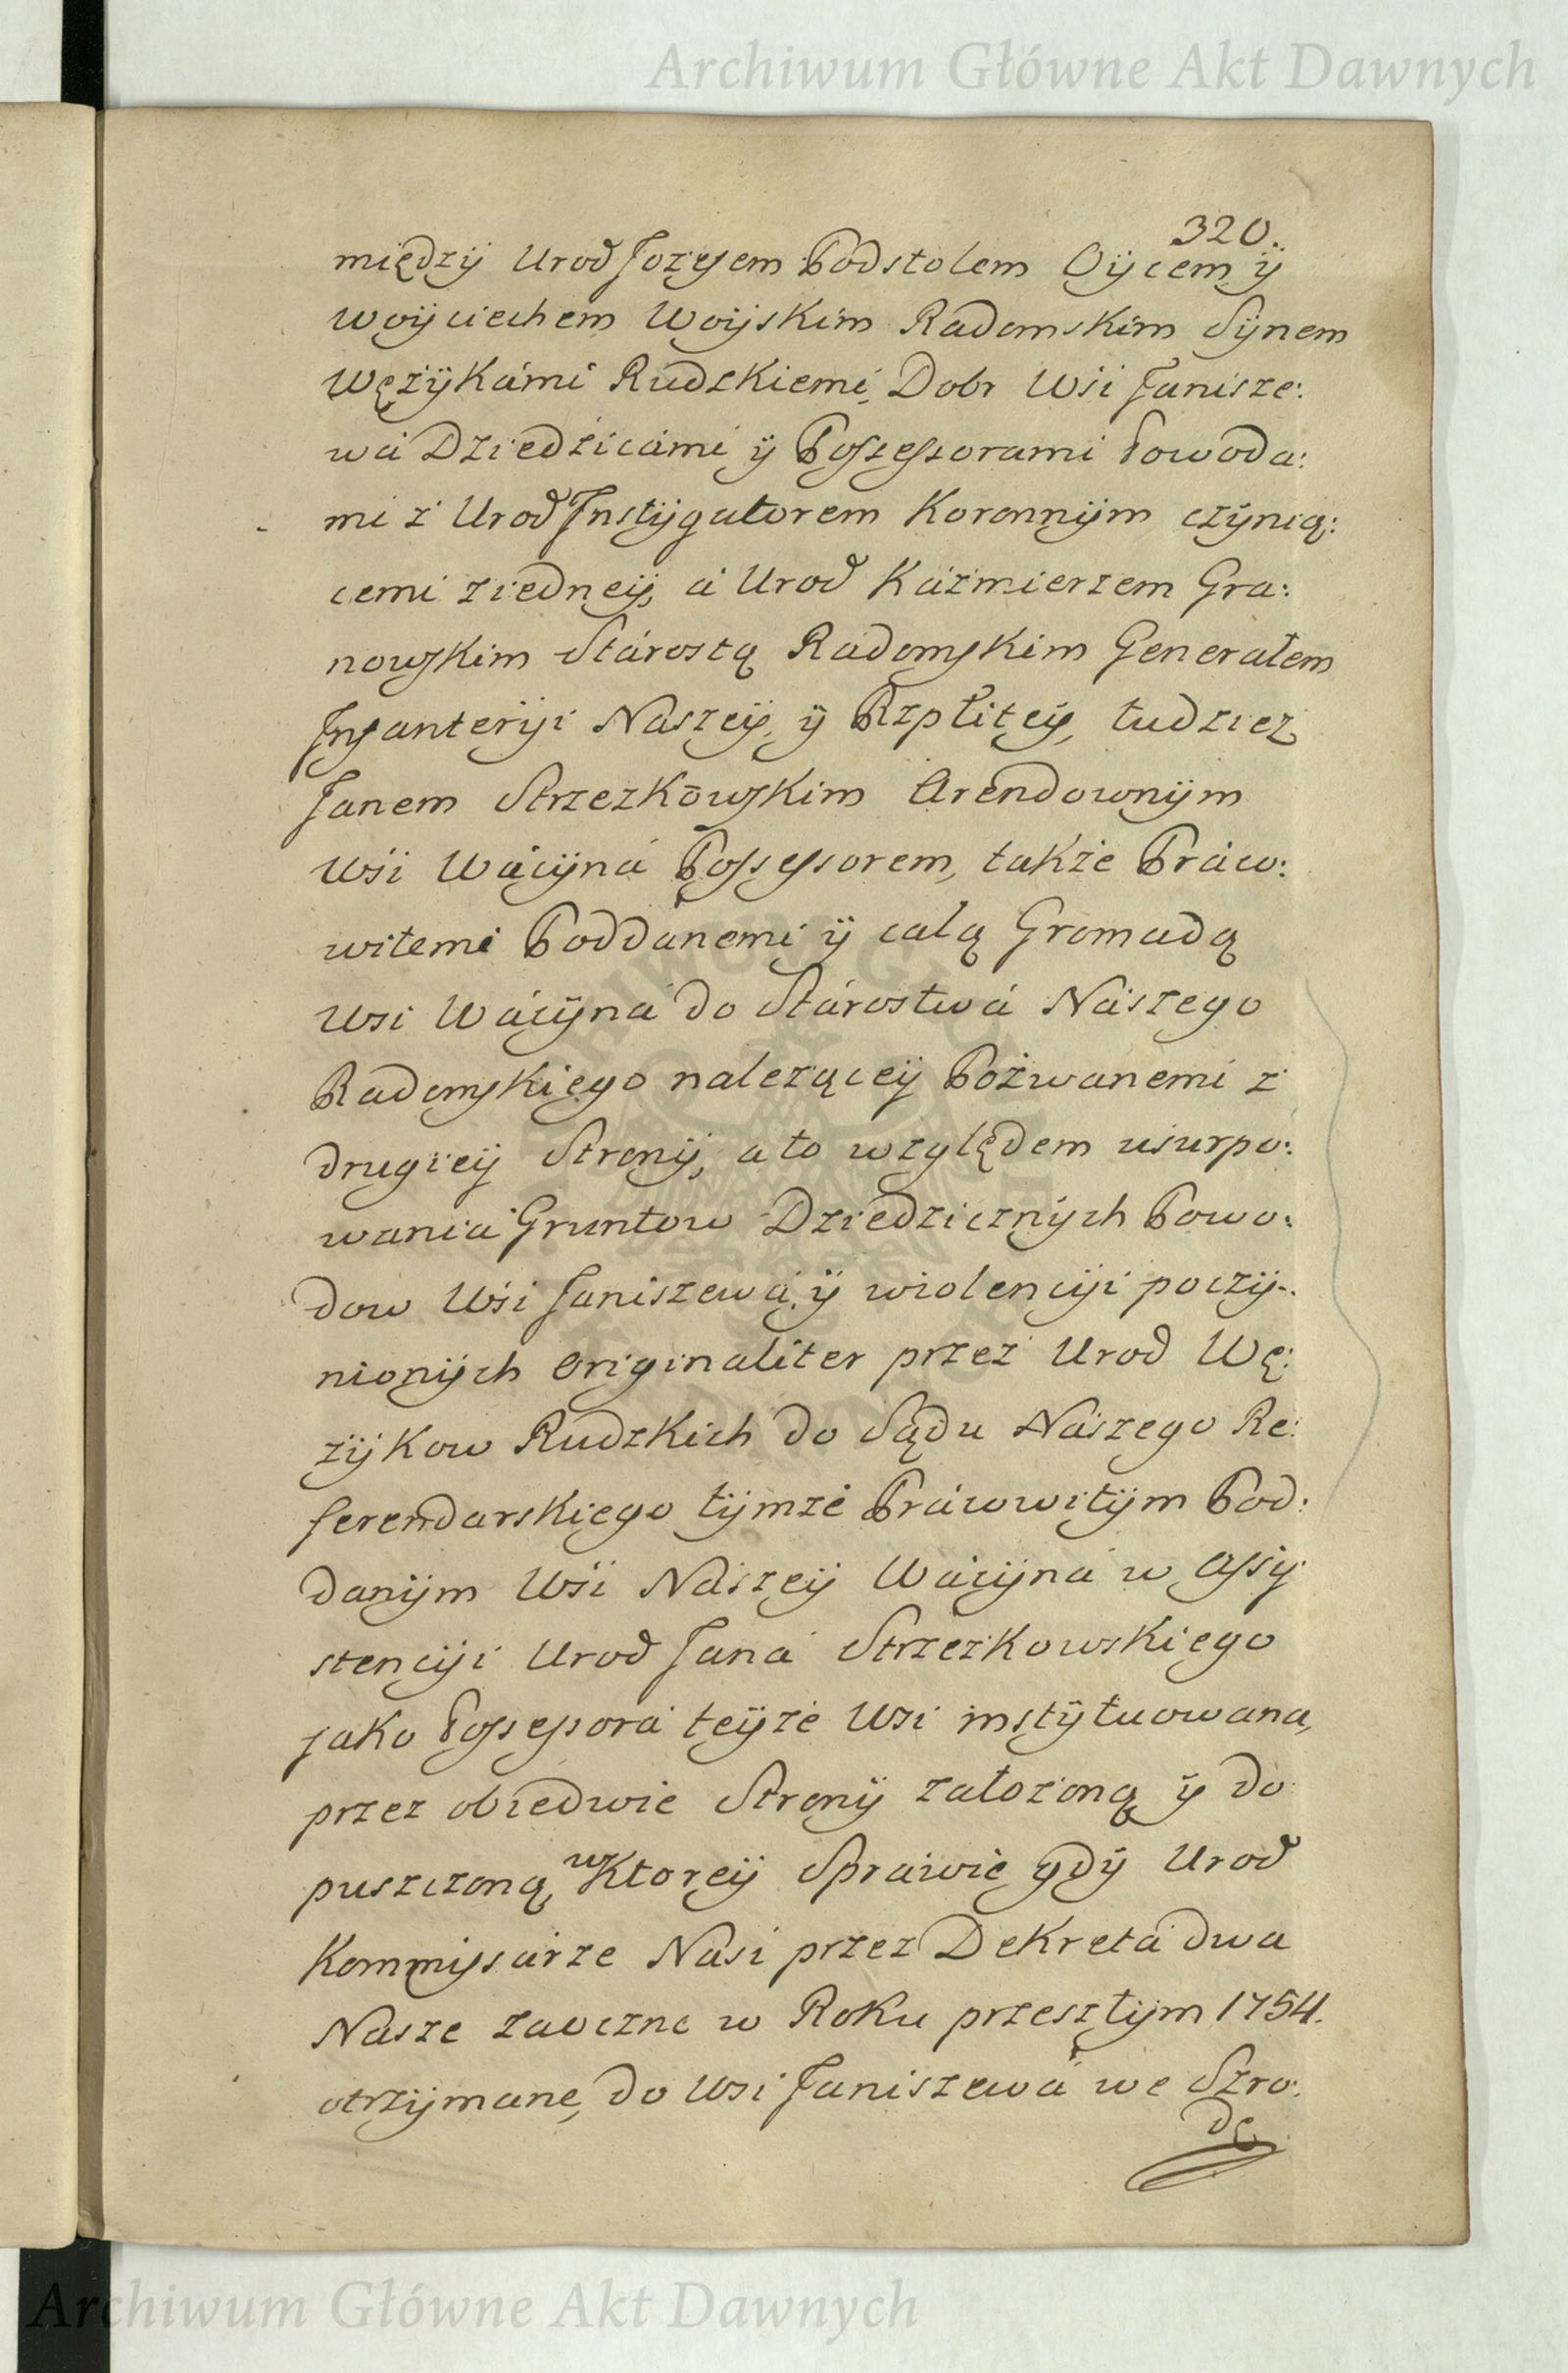 Archiwum Główne Akt Dawnych
320.
między Urod Jozefem Podstolem Oÿcem ÿ
woÿciechem Woÿskim Radomskim Sÿnem
Wężÿkámi Rudzkiemi, Dobr Wśi Janisze:
wá Dziedźicámi ÿ Possessorami Powoda:
mi z Urod Instÿgatorem Koronnÿm czÿnią:
cemi ziedneÿ, á Urod Káźmierzem Gra:
nowskim Stárostą Radomskim Generałem
Infanterÿi Naszeÿ, ÿ Rzpłiteÿ, tudziez
Janem Strzezkowskim Arendownÿm
Wśi Wácÿná Possessorem, także Práw:
witemi Poddanemi ÿ całą Gromadą
Wsi Wácÿná do Stárostwá Nászego
Radomskiego nalezącey Pozwanemi z
drugieÿ Stronÿ, a to względem usurpo:
wania Gruntow Dziedzicznÿch Powo:
dow Wśi Janiszewá, ÿ wiolencÿi poczÿ-.
nionÿch originaliter przez Urod Wę:
zÿkow Rudzkich do Sądu Nászego Re:
ferendarskiego tÿmże Práwowitÿm Pod:
danÿm Wśi Nászeÿ Wácÿná w Assÿ
stencÿi Urod Janá Strzezkowskiego
jako Possessorá teÿże Wsi instÿtuowana,
przez obiedwie Stronÿ założoną ÿ do
puszczoną, w Ktoreÿ Spráwie gdÿ Urod
Kommissárze Nasi przez Dekretá dwa
Nasze zaoczne w Roku przeszłÿm 1754.
otrzÿmane, do Wsi Janiszewá we Szro:
dę
Archiwum Główne Akt Dawnych